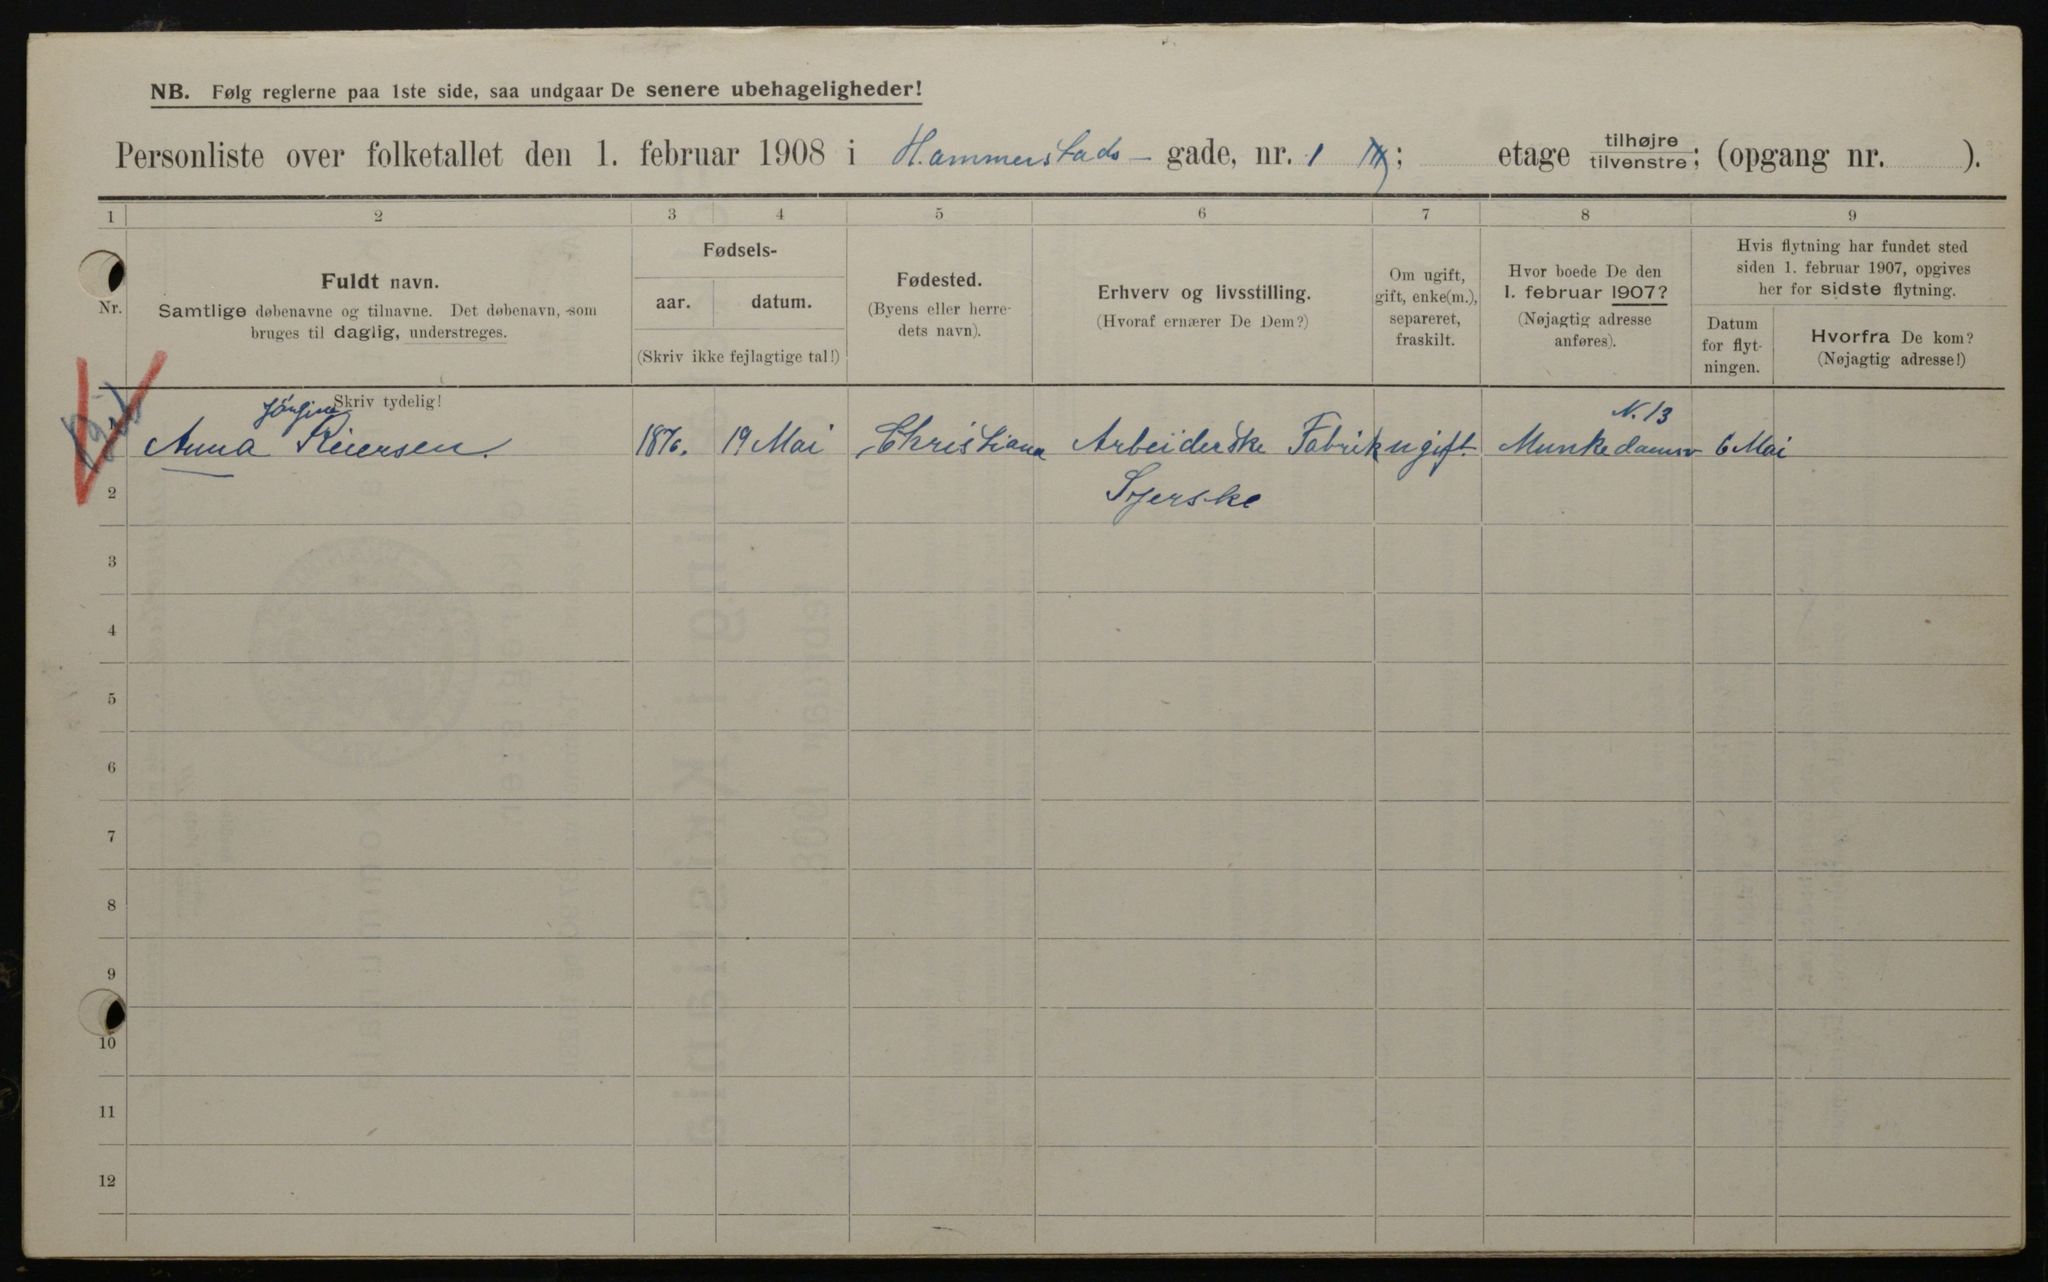 NB. Følg reglerne paa 1ste side, saa undgaar De senere ubehageligheder!
Personliste over folketallet den 1. februar 1908 i Hammerstads- gade, nr. 1 ; etage tilhøjre tilvenstre; (opgang nr. ).
1 2 3 4 5 6 7 8 9
Nr.
Fuldt navn.
Samtlige døbenavne og tilnavne. Det døbenavn, som
bruges til daglig, understreges.
Skriv tydelig!
Fødsels-
aar. datum.
(Skriv ikke fejlagtige tal!)
Fødested.
(Byens eller herre-
dets navn).
Erhverv og livsstilling.
(Hvoraf ernærer De Dem?)
Om ugift,
gift, enke(m.),
separeret,
fraskilt.
Hvor boede De den
1. februar 1907?
(Nøjagtig adresse
anføres).
Hvis flytning har fundet sted
siden 1. februar 1907, opgives
her for sidste flytning.
Datum
for flyt-
ningen.
Hvorfra De kom?
(Nøjagtig adresse!)
Jörgine N. 13
1 Anna Reiersen. 1876. 19 Mai Christiana Arbeiderske Fabrik ugift. Munkedamsv 6 Mai
2 Syerske
3
4
5
6
7
8
9
10
11
12